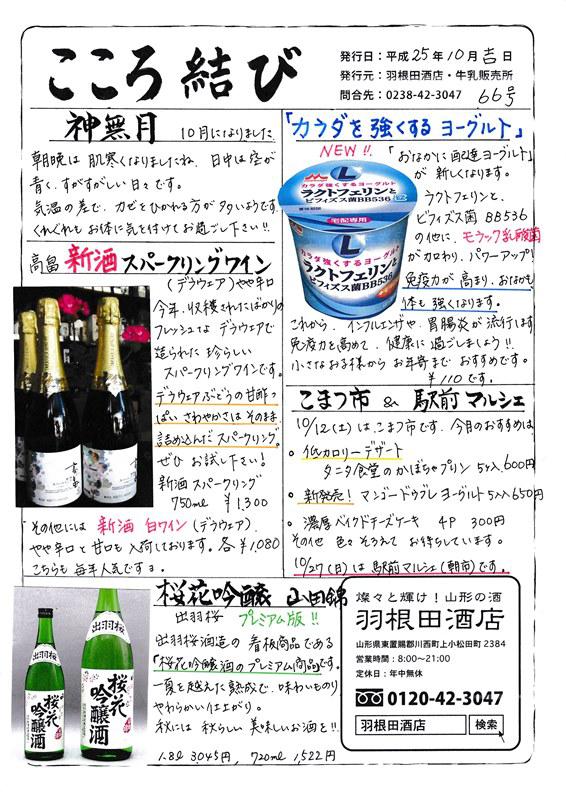 こころ結び
発行日：平成25年10月吉日
発行元：羽根田酒店・牛乳販売所
問合先：0238-42-3047　66号
神無月　10月になりました
朝晩は肌寒くなりましたね、日中は空が
青く、すがすがしい日々です。
気温の差で、カゼをひかれる方が多いようです。
くれぐれもお体に気を付けてお過ごし下さい!!
高畠 新酒 スパークリングワイン
(デラウェア)やや辛口
今年、収穫されたばかりの
フレッシュなデラウェアで
造られた珍らしい
スパークリングワインです。
デラウェアぶどうの甘酢っ
ぱいさわやかさはそのまま
詰め込んだスパークリング。
ぜひお試し下さい!
新酒スパークリング
750ml ￥1,300
その他には 新酒 白ワイン(デラウェア)、
やや辛口と甘口も入荷しております。各￥1,080
こちらも毎年人気ですョ。
「カラダを強くするヨーグルト」
NEW!!
「おなかに配達ヨーグルト」
が新しくなります。
ラクトフェリンと、
ビフィズス菌BB536
の他に、モラック乳酸菌
が加わり、パワーアップ!
免疫力が高まり、おなかも
体も強くなります。
これから、インフルエンザや、胃腸炎が流行します
免疫力を高めて、健康に過ごしましょう!!
小さなお子様からお年寄まで おすすめです。
￥110です。
カラダ強くするヨーグルト
ラクトフェリンと
ビフィズス菌BB536
宅配専用
カラダ強くするヨーグルト
ラクトフェリンと
ビフィズス菌BB536
こまつ市 & 駅前マルシェ
10/12(土)は、こまつ市です、今月のおすすめは
・低カロリーデザート
タニタ食堂のかぼちゃプリン 5ケ入 600円
・新発売! マンゴードゥブレヨーグルト5ケ入 650円
・濃厚ベイクドチーズケーキ 4P 300円
その他 色々そろえて お待ちしています。
10/27(日)は 駅前マルシェ(朝市)です。
桜花吟醸 山田錦
出羽桜 プレミアム版!!
出羽桜酒造の看板商品である
「桜花吟醸酒のプレミアム商品」です。
一夏を越えた熟成で、味わいものり
やわらかい仕上がり。
秋には秋らしい美味しいお酒を!!
1.8l 3045円, 720ml 1,522円
出羽桜
桜花吟醸酒
出羽桜
桜花吟醸酒
燦々と輝け！山形の酒
羽根田酒店
山形県東置賜郡川西町上小松田町2384
営業時間：8:00〜21:00
定休日：年中無休
0120-42-3047
羽根田酒店 検索